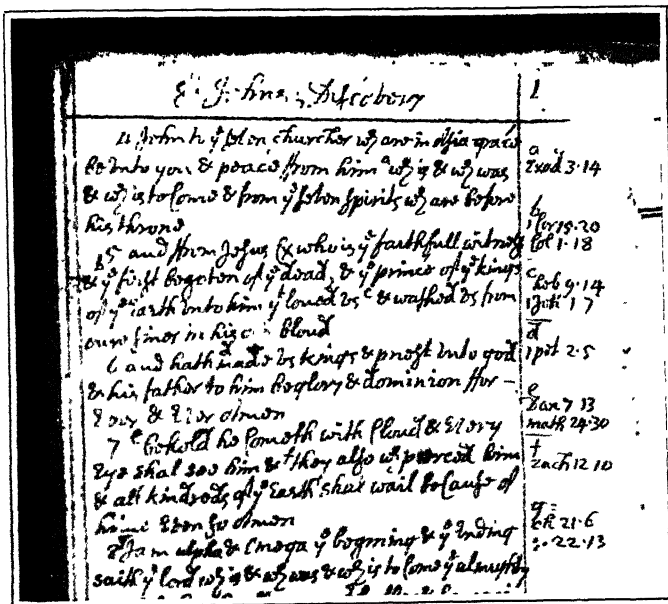 St Johns Discovery 1
4 John to ye seven churches wch are in Asia grace
be unto you & peace ffrom him a wch is & wch was
& wch is to Come & from ye seven spirits wch are before
his throne
b 5 and ffrom Jesus Cx who is ye faithfull witness
& ye first begoten of ye dead, & ye prince of ye kings
of ye earth unto him yt loued vs c & washed vs from
oure sines in his bloud
6 and hath d made vs kings & priest unto god
& his father to him be glory & dominion ffor –
Ever & Ever Amen
7 e behold he Cometh with Cloud & Every
Eye shal see him & f they also wch peerced him
& all kindreds of ye Earth shal wail because of
him Even so Amen
8 g I am alpha & Omega ye begining & ye Ending
saith ye lord wch is & wch was & wch is to Come ye almughty
a
Exod 3·14
b
1 Cor 15·20
Col 1·18
c
heb 9·14
1 Joh 1 7
d
1 pet 2·5
e
Dan 7 13
math 24·30
f
zach 12 10
g
ch 21·6
22·13